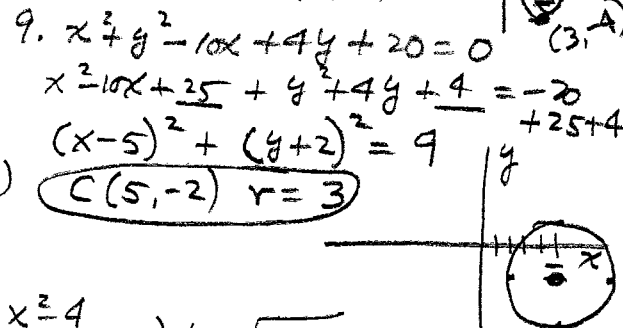 9. x²+y²-10x+4y+20=0
(3,-4)
x²-10x+25+y²+4y+4=-20
+25+4
(x-5)²+(y+2)²=9
y
C(5,-2) r=3
x
x²-4